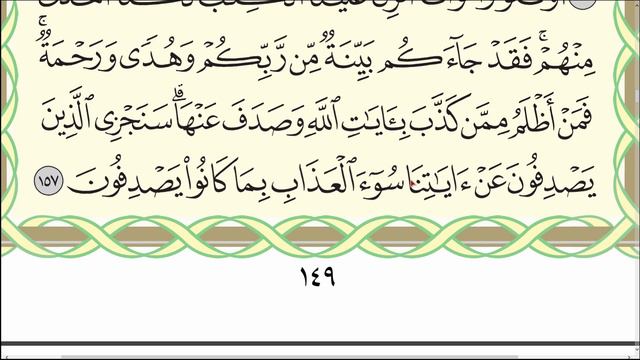 مِنْهُمْ ۚ فَقَدْ جَآءَكُم بَيِّنَةٌ مِّن رَّبِّكُمْ وَهُدًى وَرَحْمَةٌ ۚ
فَمَنْ أَظْلَمُ مِمَّن كَذَّبَ بِـَٔايَٰتِ ٱللَّهِ وَصَدَفَ عَنْهَا ۗ سَنَجْزِى ٱلَّذِينَ
يَصْدِفُونَ عَنْ ءَايَٰتِنَا سُوٓءَ ٱلْعَذَابِ بِمَا كَانُوا۟ يَصْدِفُونَ ١٥٧
١٤٩